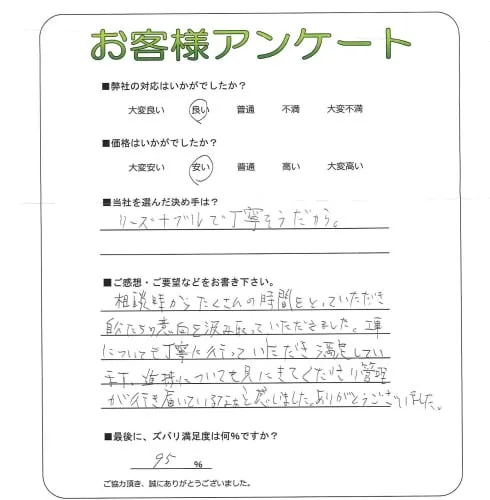 お客様アンケート
■弊社の対応はいかがでしたか？
大変良い 良い 普通 不満 大変不満
■価格はいかがでしたか？
大変安い 安い 普通 高い 大変高い
■当社を選んだ決め手は？
リーズナブルで丁寧そうだから。
■ご感想・ご要望などをお書き下さい。
相談時からたくさんの時間をとっていただき
自分たちの意向を汲み取っていただきました。工事
についても丁寧に行っていただき満足してい
ます。進捗についても見にきてくださり管理
が行き届いているなぁと感じました。ありがとうございました。
■最後に、ズバリ満足度は何%ですか？
95 %
ご協力頂き、誠にありがとうございました。